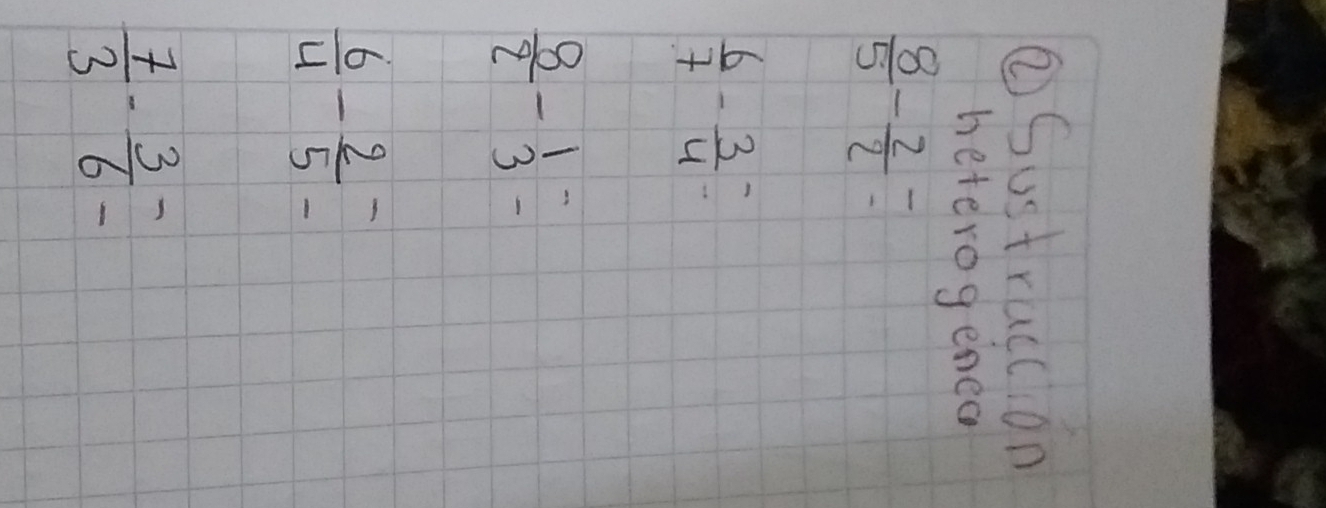 ② Sustracción
heterogenea
8/5 - 2/2 =
6/7 - 3/4 =
8/2 - 1/3 =
6/4 - 2/5 =
7/3 - 3/6 =